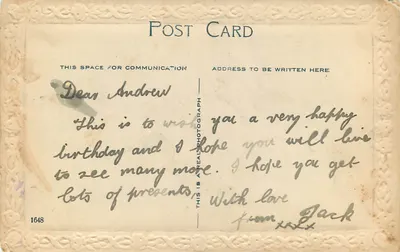 POST CARD
THIS SPACE FOR COMMUNICATION ADDRESS TO BE WRITTEN HERE
Dear Andrew
This is to wish you a very happy
birthday and I hope you will live
to see many more. I hope you get
lots of presents, With love
from Jack
xxxx
THIS IS A REAL PHOTOGRAPH
1648